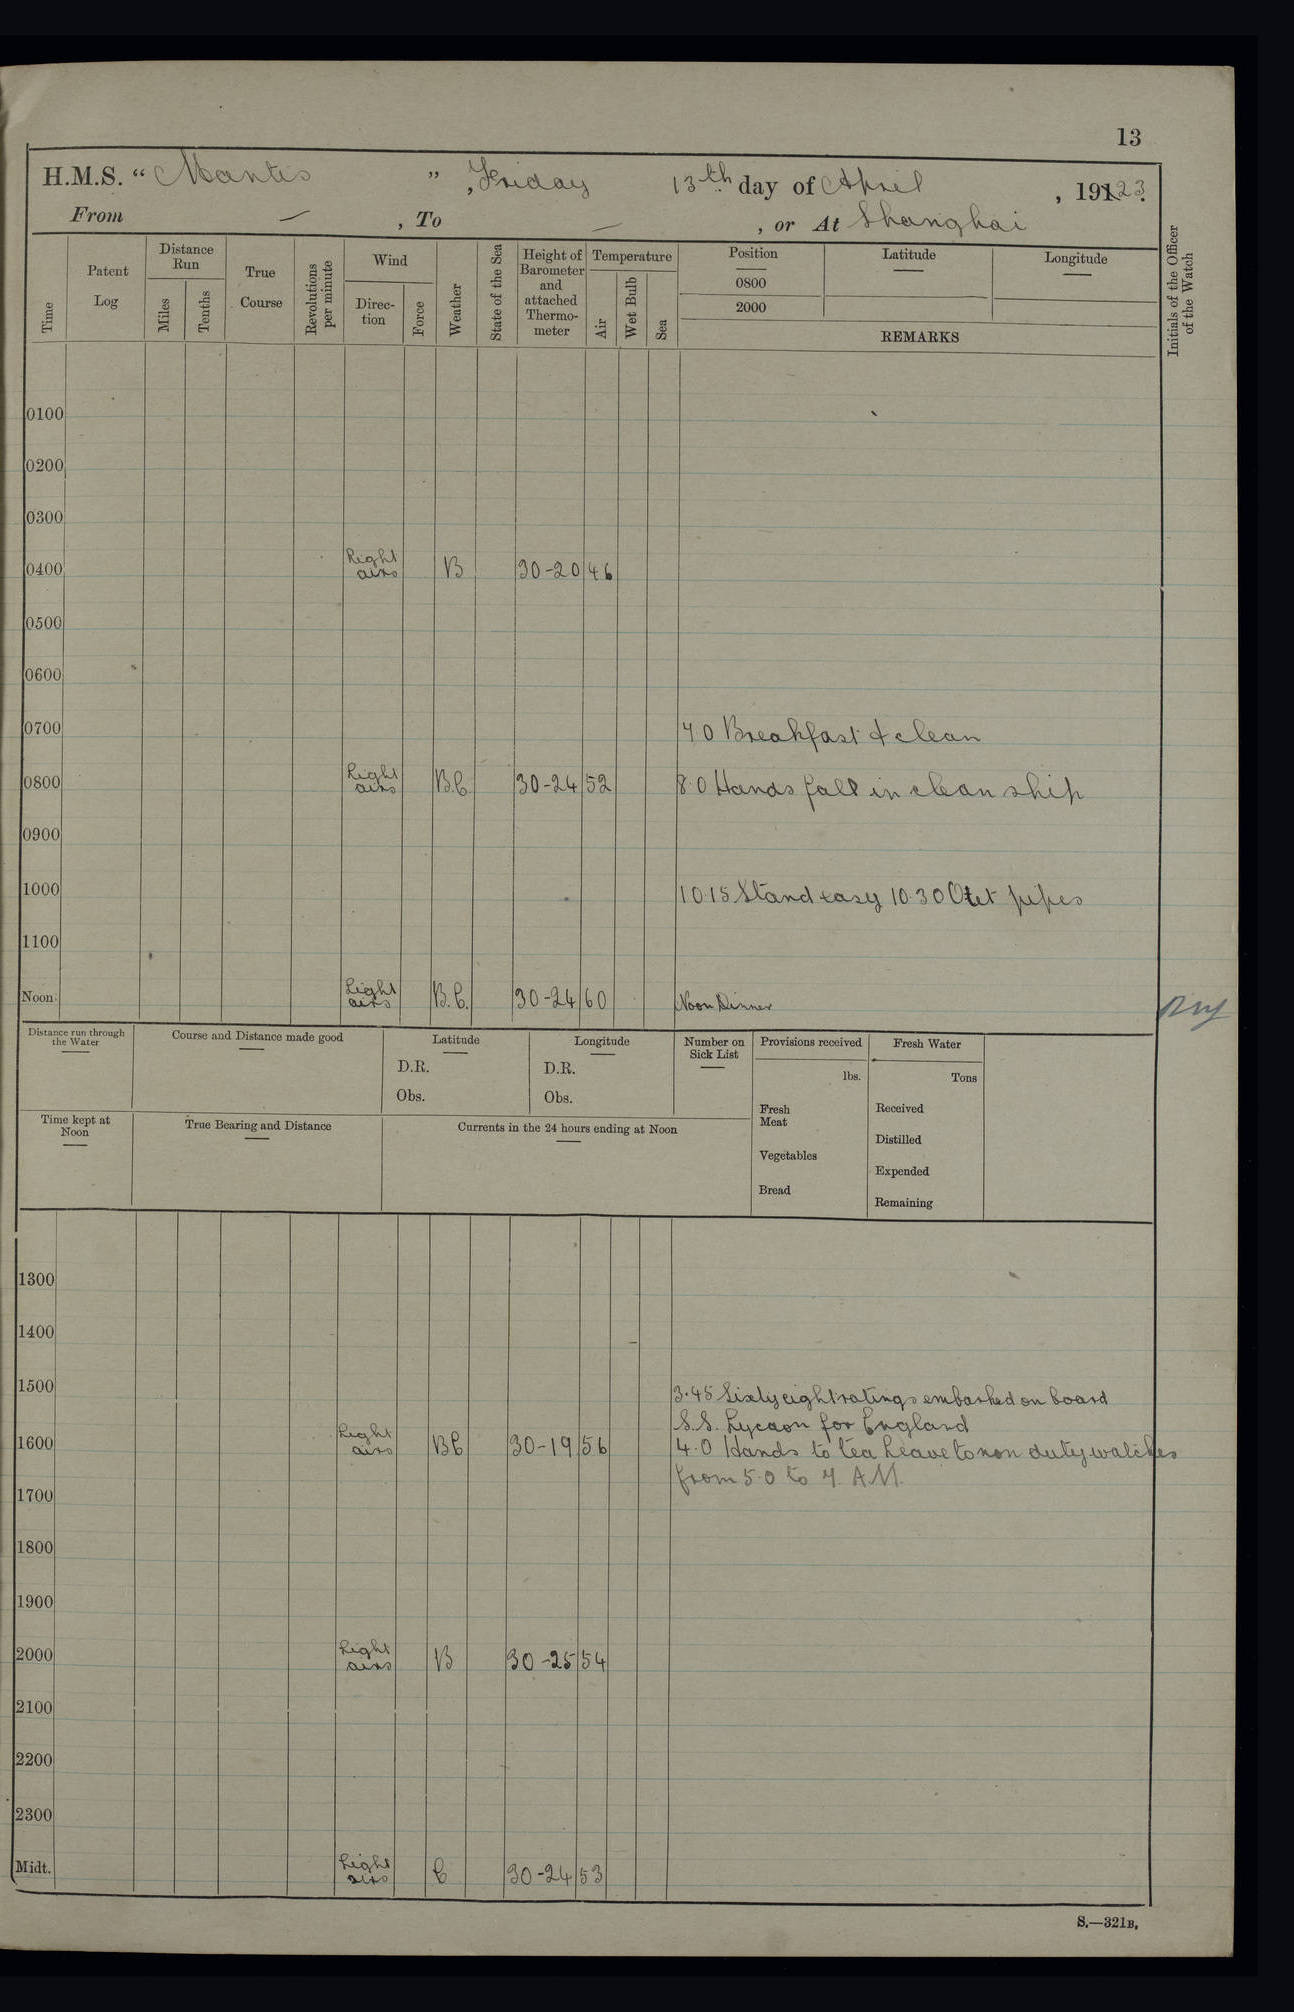 13
H.M.S. “ Mantis ” , Friday 13th day of April , 1923.
From — , To — , or At Shanghai
Time
Patent Log
Distance Run
Miles
Tenths
True Course
Revolutions per minute
Wind
Direc- tion
Force
Weather
State of the Sea
Height of Barometer and attached Thermo- meter
Temperature
Air
Wet Bulb
Sea
Position
0800
2000
Latitude
Longitude
REMARKS
Initials of the Officer of the Watch
0100
0200
0300
0400 Light airs B 30-20 46
0500
0600
0700 7 0 Breakfast & clean
0800 Light airs B.C 30-24 52 8.0 Hands fall in clean ship
0900
1000 10.15 Stand easy 10.30 Out pipes
1100
Noon Light airs B.C. 30-24 60 Noon Dinner
Distance run through the Water
Course and Distance made good
Latitude
D.R.
Obs.
Longitude
D.R.
Obs.
Number on Sick List
Provisions received
lbs.
Fresh Meat
Vegetables
Bread
Fresh Water
Tons
Received
Distilled
Expended
Remaining
Time kept at Noon
True Bearing and Distance
Currents in the 24 hours ending at Noon
1300
1400
1500 3.45 Sixty eight ratings embarked on board
S.S. Lycaon for England
1600 Light airs BC 30-19 56 4.0 Hands to tea Leave to non duty watches
from 5.0 to 7. A.M.
1700
1800
1900
2000 Light airs B 30-25 54
2100
2200
2300
Midt. Light airs C 30-24 53
S.—321B.